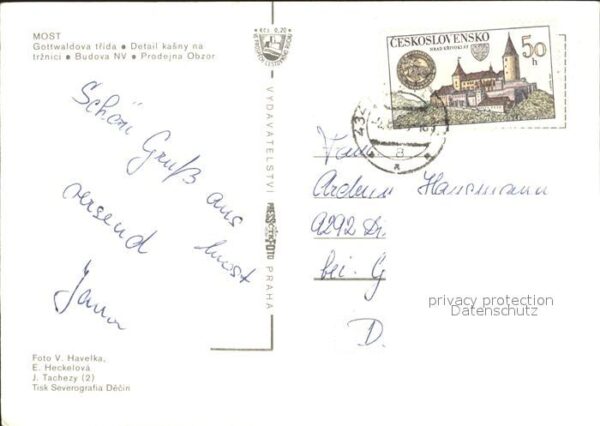 MOST
Gottwaldova třída ● Detail kašny na
tržnici ● Budova NV ● Prodejna Obzor
Kčs 0,20
ČESKOSLOVENSKO
HRAD KŘIVOKLÁT
50 h
434
a
Schön Gruß aus
Most
versend
Jana
VYDAVATELSTVÍ
PRESSFOTO
PRAHA
Fam
Hansmann
9292
bei G
D.
privacy protection
Datenschutz
Foto V. Havelka,
E. Heckelová
J. Tachezy (2)
Tisk Severografia Děčín